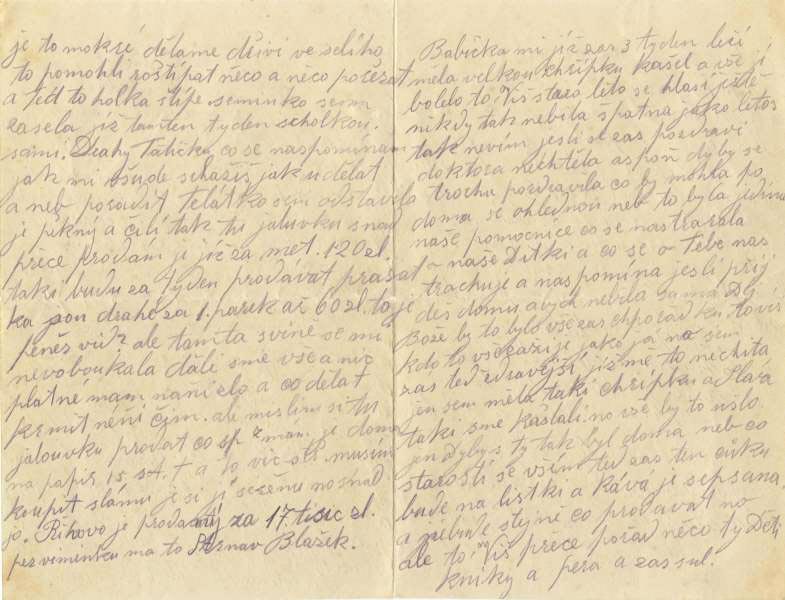 je to mokré, děláme dříví ve seliho
to pomohli roštípat něco a něco pořezat
a teď to holka štípe semínko sem
zasela již tamten tyden scholkou.
sami. Drahy Tatičku co se naspominam
jak mi všude schaziš jak udělat
a neb poradit Telátko sem odstavila
je pěkný a čilí tak tu jalůvku snad
přece prodám je již za met. 120 zl.
taki budu za tyden prodavat prasat
ka sou drahé za 1. parek až 60 zl. to je
peněz viď ale tamta svine se mi
nevoboukala dali sme vse a nic
platné mam naní elo a co dělat
krmit neni čim. ale mislim si tu
jalouvku prodat co mám je doma
na papir. 15 st. + a to vic ale musim
koupit slámu jesi ji seženu no snad
jo. Řihovo je prodaný za 17 tisic zl.
pez vimenku ma to Blažek.
Babička mi již zas 3 tyden leži
měla velkou chřipku kašel a vše ji
bolelo to viš staro leto se hlasi ještě
nikdy tak nebila špatna jako letos
tak nevim jesli se zas pozdravi
doktora nechtěla aspoň dyby se
trochu pozdravila co by mohla po
doma se ohlednou neb to byla jedina
naše pomocnice co se nastarala
o naše Ditki a co se o Tebe nas
trachuje a naspomina jesli přij
deš domu abych nebila sama Dej
Bože by to bylo vše zas chpořadku to viš
kdo to vše zažije jako ja no sem
zas teď zdravější již mě to nechita
jen sem měla taki chřipku a Slava
taki sme kašlali. no vše by to ušlo
jen dybys ty tak byl doma neb co
starosti se vším teď zas ten cukr
bude na listki a káva je sepsana,
a nebude stejně co prodavat no
ale to viš přece pořad něco ty Děti
knižky a pera a zas sul.